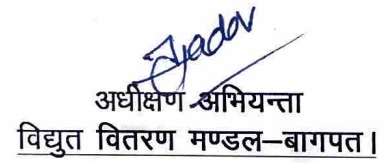 Yadav
अधीक्षण अभियन्ता
विद्युत वितरण मण्डल–बागपत।